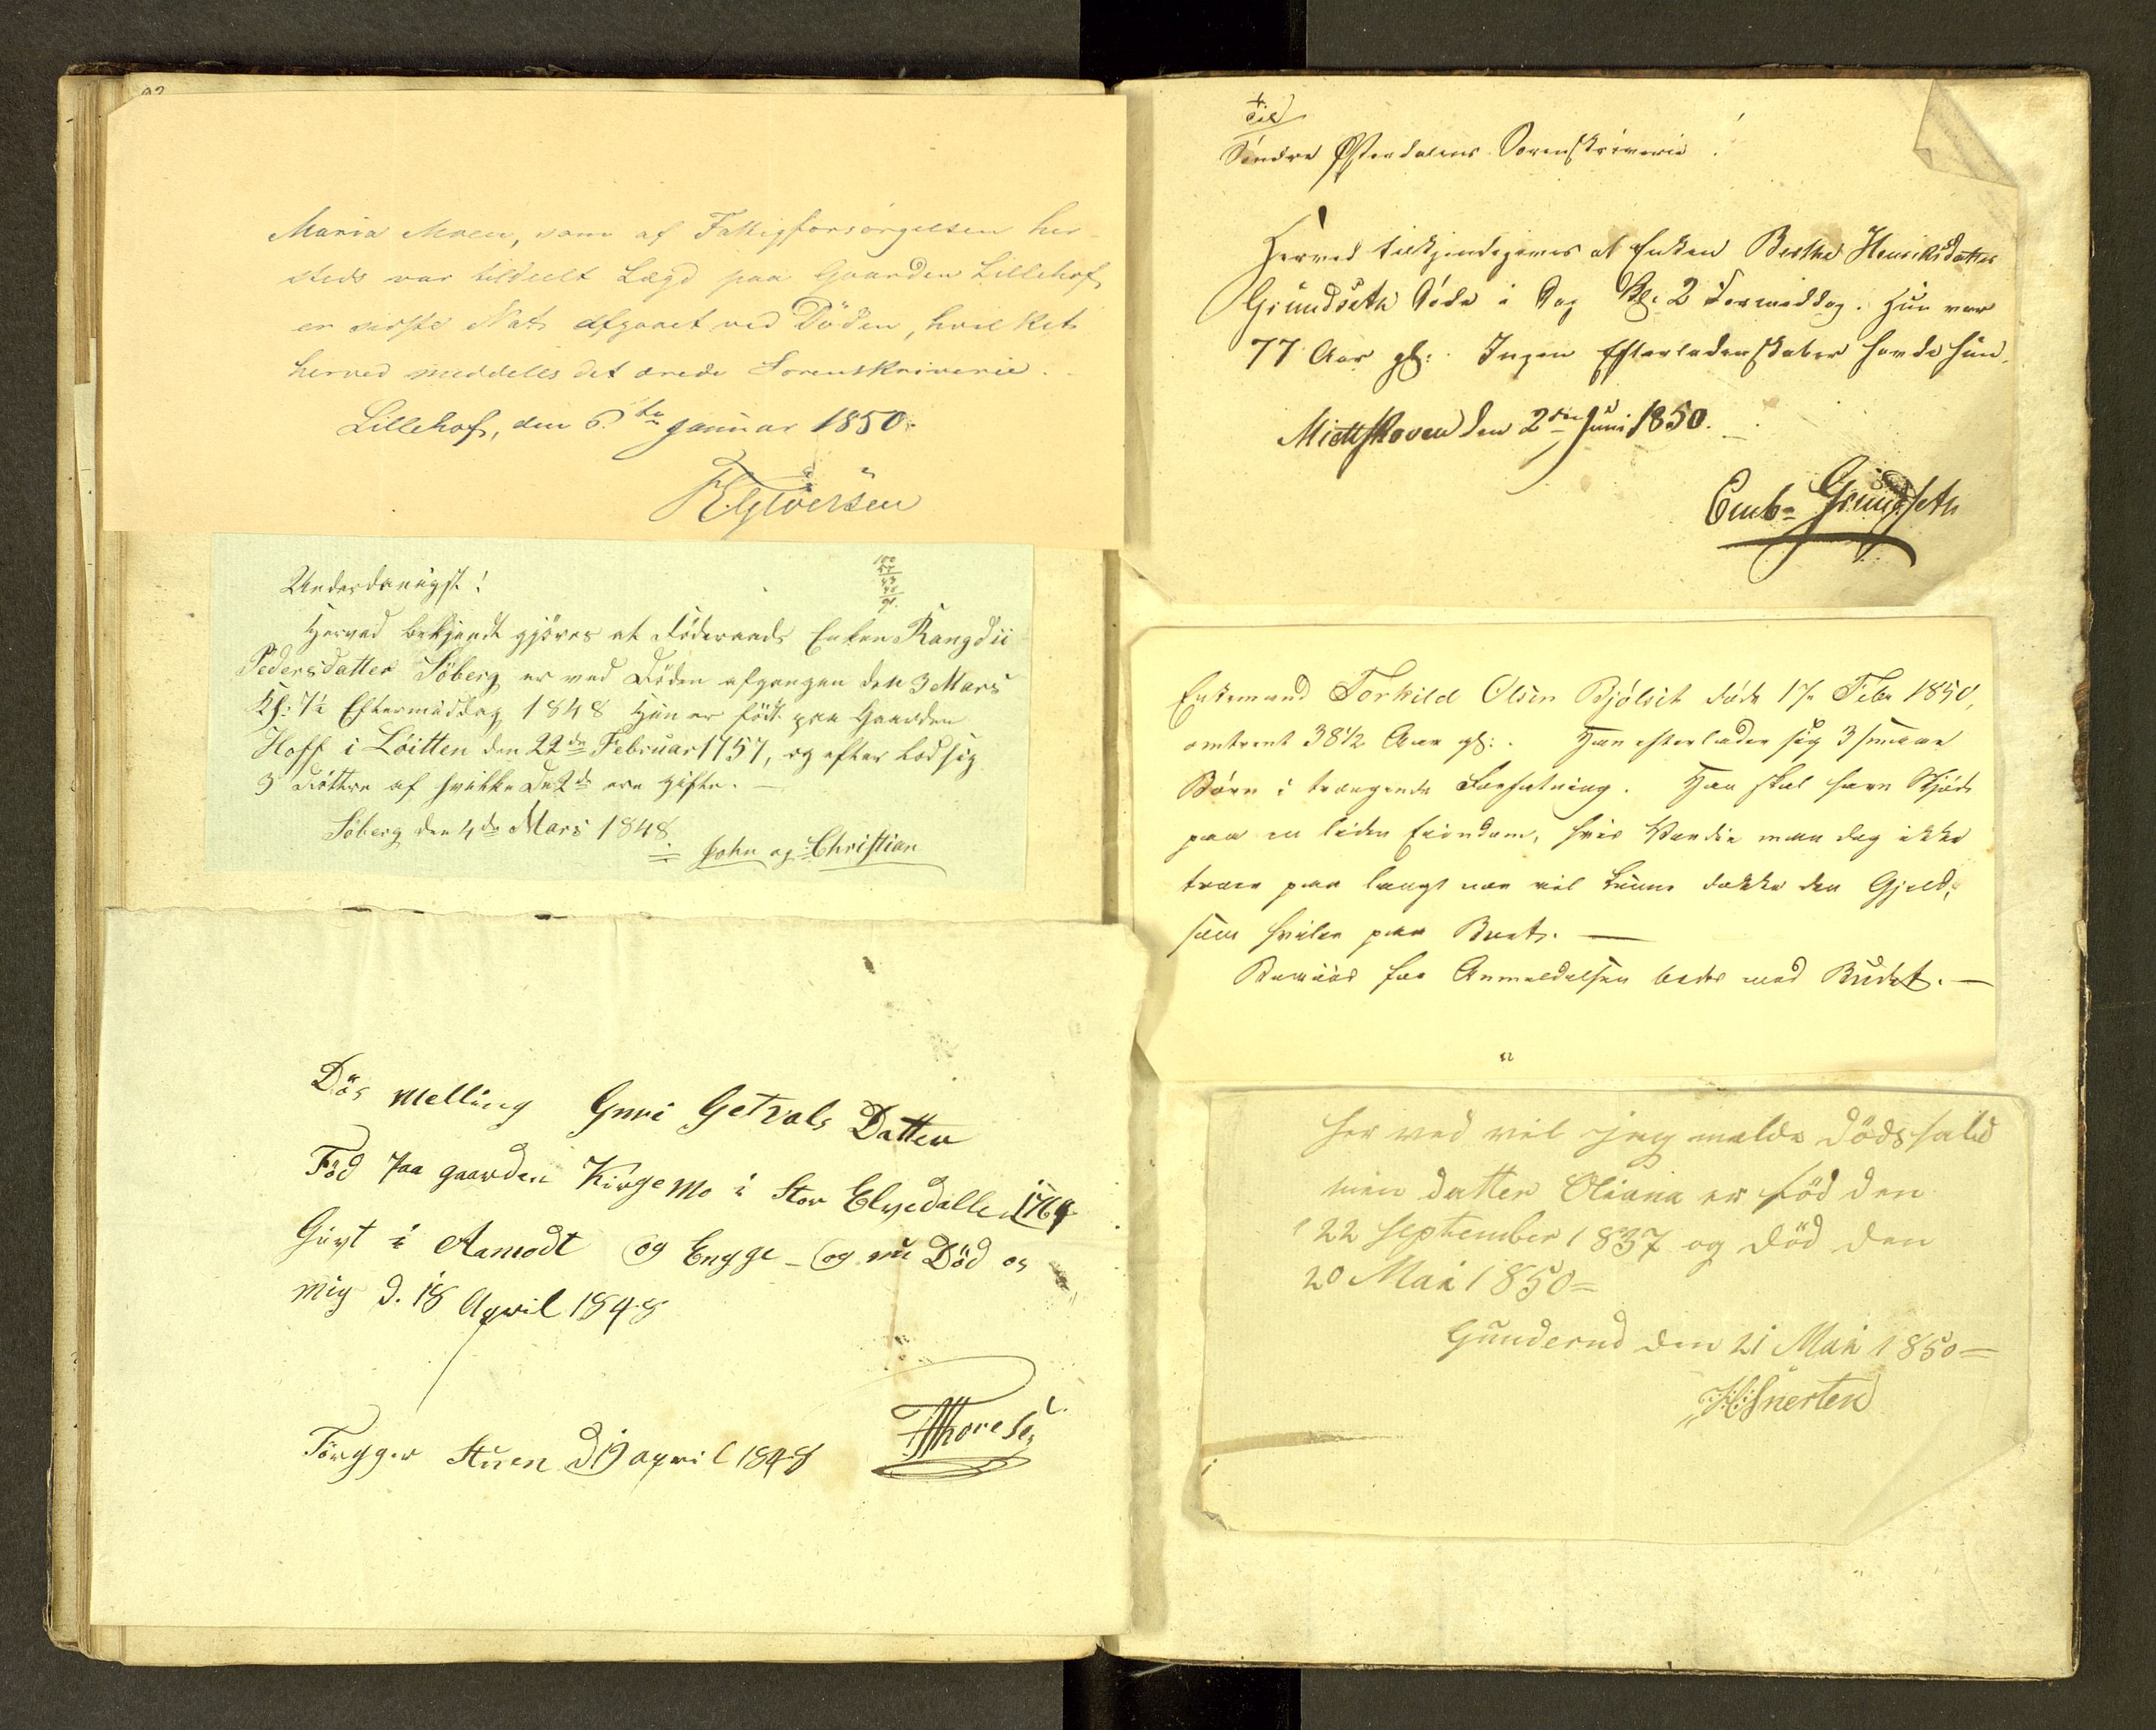 Maria Moen, som af Fattigforsörgelsen her-
steds var tildeelt Lægd paa Gaarden Lillehof,
er sidste Nat afgaaet ved Döden, hvilket
herved meddeles det ærede Sorenskriverie.
Lillehof, den 6te Januar 1850.
Iversen
Underdanigst!
Herved bekjendt gjöres at Föderaads Enken Rangdii
Pedersdatter Söberg er ved Döden afgangen den 3 Mars
Kl: 7½ Eftermiddag 1848 Hun er födt paa Gaarden
Hoff i Löitten den 22de Februar 1757, og efterlod sig
3 Döttre af hvilke De 2de ere gifte. —
Söberg den 4de Mars 1848
John og Christian
Dös melling Guri Getvals Datter
Föd paa gaarden Kirge Mo i Stor Elvedallen 1769
Givt i Aamodt og Engge - og nu Död os
mig d. 18 April 1848
Stuen d 19 april 1848
Thoresen
Til
Söndre Österdalens Sorenskriverie!
Herved tilkjendegives at Enken Berthe Henriksdatter
Grundseth döde i Dag Kl. 2 Formiddag. Hun var
77 Aar gl: Ingen Efterladenskaber havde hun.
Mieltskoven den 2den Juni 1850.
Emb. Grundseth
Enkemand Torkild Olsen Bjölset döde 17 Febr 1850,
omtrent 38½ Aar gl: Han efterlader sig 3 smaae
Börn i trængende Forfatning. Han skal have Skjöde
paa en liden Eiendom, hvis Værdie man dog ikke
troer paa langt nær vil kunne dække den Gjæld,
som hviler paa Boet. —
Beviis for Anmeldelsen bedes med Budet. —
her ved vil jeg melde dödsfald
min datter Oliana er föd den
22 September 1837 og död den
20 Mai 1850 =
Gunderud den 21 Mai 1850 =
Snerten